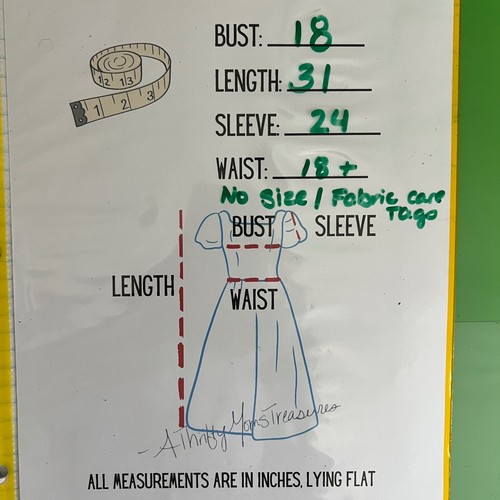 BUST: 18
LENGTH: 31
SLEEVE: 24
WAIST: 18+
No Size / Fabric care
Tags
BUST SLEEVE
LENGTH
WAIST
-AThriftyMomsTreasures
ALL MEASUREMENTS ARE IN INCHES, LYING FLAT
12 13
1 2 3